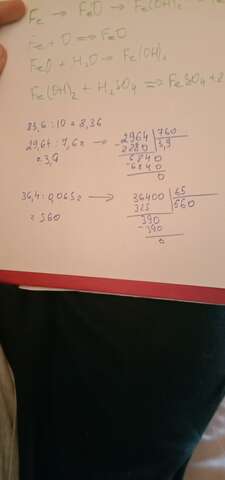 Fe → FeO → Fe(OH)₂ →
Fe + O ⇒ FeO
FeO + H₂O → Fe(OH)₂
Fe(OH)₂ + H₂SO₄ ⇒ FeSO₄ + 2
83,6 : 10 = 8,36
29,64 : 7,6 = → - 2964 | 760
= 3,9 2280 | 3,9
6840
- 6840
0
36,4 : 0,065 = → 36400 | 65
= 560 325 | 560
390
- 390
0